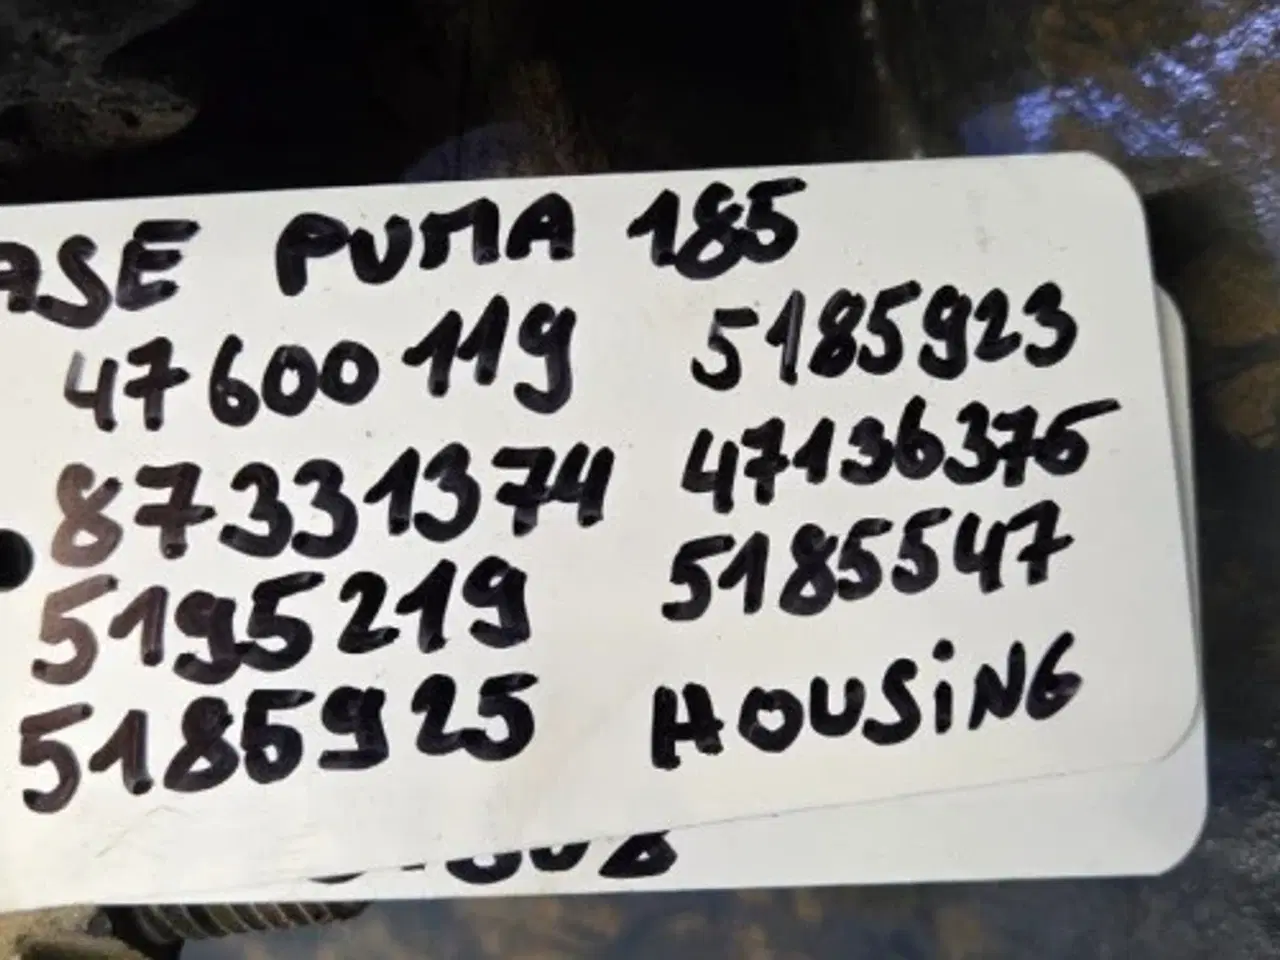 ASE PUMA 185
47600119 5185923
87331374 47136376
5195219 5185547
5185925 HOUSiNG